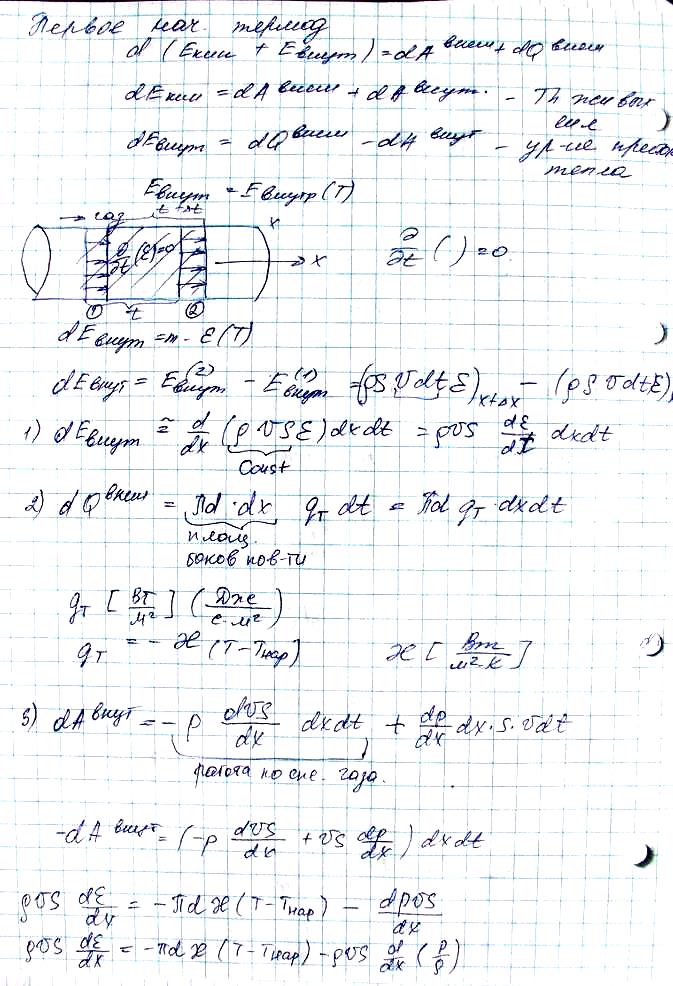 Первое нач. термод
d (Eкин + Eвнут) = dA внеш + dQ внеш
dEкин = dA внеш + dA внут. - Th живых сил
dEвнут = dQ внеш - dA внут - ур-ие притока тепла
Eвнут = Eвнутр (T)
→ газ t + Δt x
∂/∂t (ℰ)=0 x ∂/∂t ( ) = 0.
① t ②
dEвнут = m · ℰ(T)
dEвнут = Eвнут (2) - Eвнут (1) = (ρ S v dt ℰ) x+Δx - (ρ S v dt ℰ)
1) dEвнут ≅ d/dx (ρ v S ℰ) dx dt = ρ v S dℰ/dx dx dt
Const
2) dQ внеш = πd · dx q_T dt = πd q_T · dx dt
площ.
боков пов-ти
q_T [Вт/м²] (Дж/с·м²)
q_T = - ϰ (T - Tнар) ϰ [Вт/м²·К]
3) dA внут = - p dvS/dx dx dt + dp/dx dx · S · v dt
работа по сж. газа.
-dA внут = (-p dvS/dx + vS dp/dx) dx dt
ρvS dℰ/dx = - πd ϰ (T - Tнар) - dpvS/dx
ρvS dℰ/dx = - πd ϰ (T - Tнар) - ρvS d/dx (p/ρ)